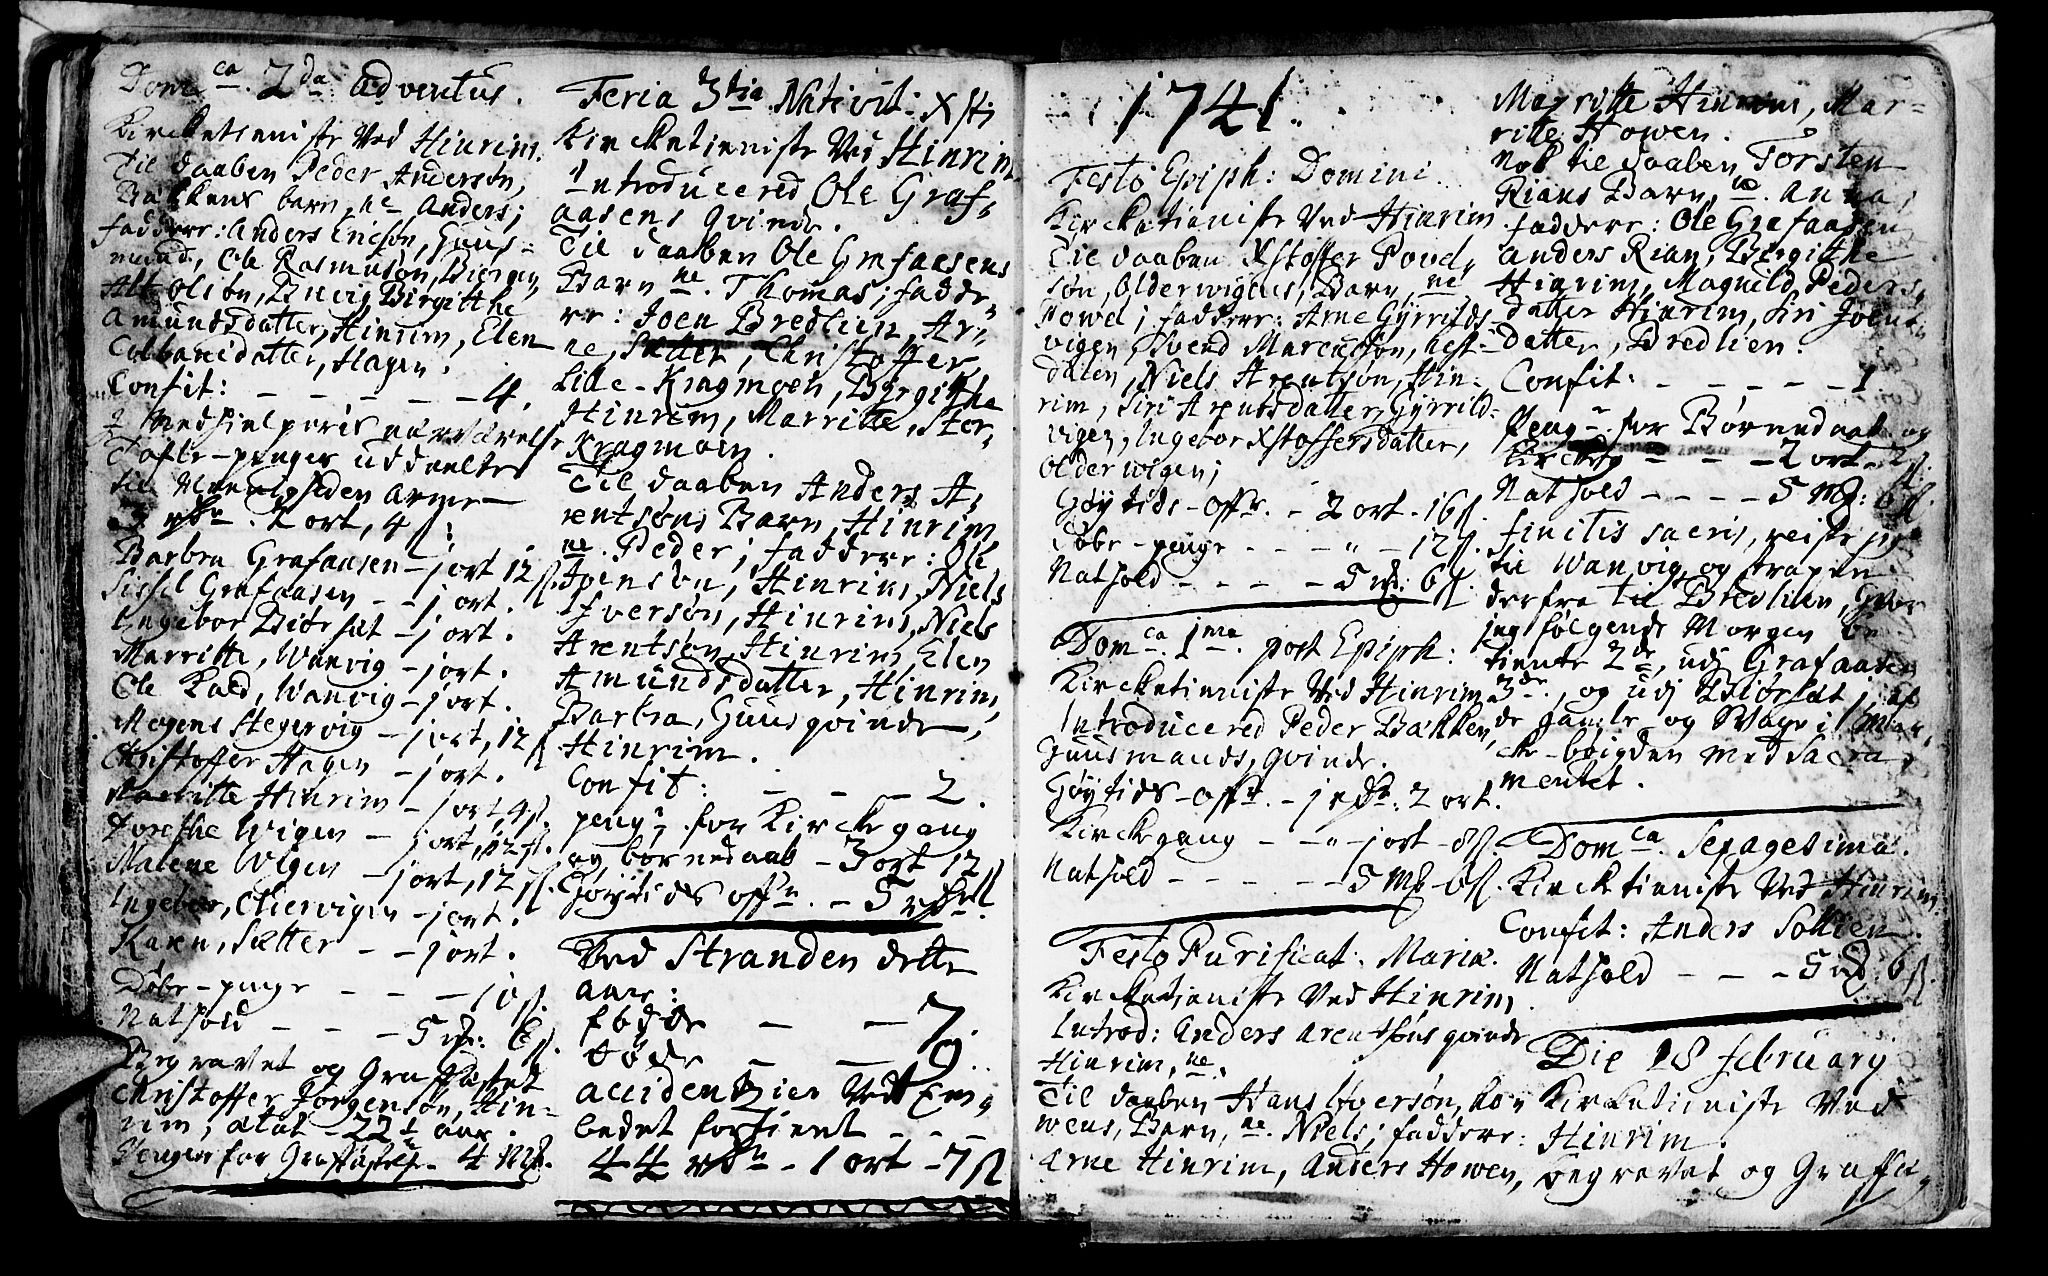 Dom ca. 2 da Adventus.
Kircketieniste Ved Hinrim.
Til daaben Peder Andersøn,
Bakkens barn, ne Anders;
faddere: Anders Ericsøn, Huus-
mand, Ole Rasmusøn, Biergen,
Alt Olsøn, Birgitthe
Amundsdatter, Hinrim, Elen
Colbansdatter, Hagen.
Confit: - - - - - 4.
Tafle-penger uddeelte
til Menighedens arme
3 rdr. 2 ort, 4 s:
Barbra Grafaasen - j ort 12 s.
Sissel Grafaasen - - j ort.
Ingebor Biørset - j ort.
Marritte, Wanvig - j ort.
Ole Kald, Wanvig - j ort.
Mogens Hegervig - j ort, 12 s.
Christoffer Hagen - j ort.
Marritte Hinrim - j ort, 4 s.
Dorethe Wigen - j ort, 12 s.
Malene Wigen - j ort, 12 s.
Ingebor, Oliervigen - j ort.
Karen, Sætter - - j ort.
Døbe-penge - - - 10 s.
Nathold - - - 5 mk: 6 s.
Begravet og Graffæstet
Christoffer Jørgensøn, Hin-
rim; ætat - 22 1/2 aar.
Penger for Graffæstelse - 4 Mk.
Feria 3 tia Nativit: Xsti
Kircketieniste Ved Hinrim
Introducered Ole Graf-
aasens qvinde.
Til daaben Ole Grafaasens
Barn ne. Thomas; fadde-
re: Joen Bredlien, Ar-
ne, Sætter, Christoffer
Lille-Kragmoen, Byrgitthe
Hinrim, Marritte, Stor-
Kragmoen.
Til daaben Anders A-
rentsøns Barn, Hinrim,
ne. Peder; faddere: Ole
Joensøn, Hinrim, Niels
Iversøn, Hinrim, Niels
Arentsøn, Hinrim, Elen
Amundsdatter, Hinrim,
Barbra, Huusqvinde,
Hinrim.
Confit: - - - 2.
peng: for Kirckegang
og børnedaab - 3 ort 12 s
Høytids offr. - 5 rdr.
Ved Stranden dette
aar:
fødde - - 7.
døde - - 9.
Accidentzier Ved Em-
bedet fortient - - -
44 rdr - 1 ort - 7 s
1741.
Festo Epiph: Domini
Kircketieniste Ved Hinrim
Til daaben Xstoffer Povel-
søn, Olderwigens, Barn, ne
Powel; faddere: Arne Gyrrilds-
vigen, Svend Marcussøn, Hest-
dalen, Niels Arentsøn, Hin-
rim, Siri Arentsdatter, Gyrrild-
vigen, Ingebor Xstoffersdatter,
Olderwigen;
Høytids-offr. - 2 ort - 16 s.
Døbe-penge - - - " - 12 s.
Nathold - - - - 5 mk: 6 s.
Dom ca. 1 ma. post Epiph:
Kircketieniste Ved Hinrim
Introducered Peder Bakken,
Huusmands, qvinde.
Høytids-offr. - j rdr. 2 ort.
Kirckegang - - " - j ort - 8 s.
Nathold - - - - - 5 Mk 6 s.
Festo Purificat: Mariæ.
Kircketieniste Ved Hinrim
Introd: Anders Arentsøns qvinde
Hinrim, ne.
Til daaben Hans Iversøn, Ho-
wens, Barn, ne. Niels; faddere:
Arne Hinrim, Anders Howen,
Marritte Hinrim, Mar-
ritte Howen.
Nok til daaben Torsten
Rians Barn, ne. Anna;
faddere: Ole Grafaasen
Anders Rian, Birgitthe
Hinrim, Magnild Peders-
datter Hinrim, Siri Joens-
datter, Bredlien.
Confit: - - - - - 1.
Peng. for Børnedaab og
Kirckeg - - - 2 ort - 2 s.
Nathold - - - - 5 Mk: 6 s.
finitis sacris, reiste jeg
til Wanvig og
derfra til Bredlien, hvor
jeg følgende Morgen be-
tiente 2de, udj Grafaasen
3de, og udj Biørset j; af
de gamle og Svage i Mar-
cke-bøigden med Sacra-
mentet.
Dom ca. Sexagesima.
Kircketieniste Ved Hinrim:
Confit: Anders Sollien.
Nathold - - - 5 mk. 6 s.
Die 18 february
Kircketieniste Ved
Hinrim.
Begravet og Graffæ-